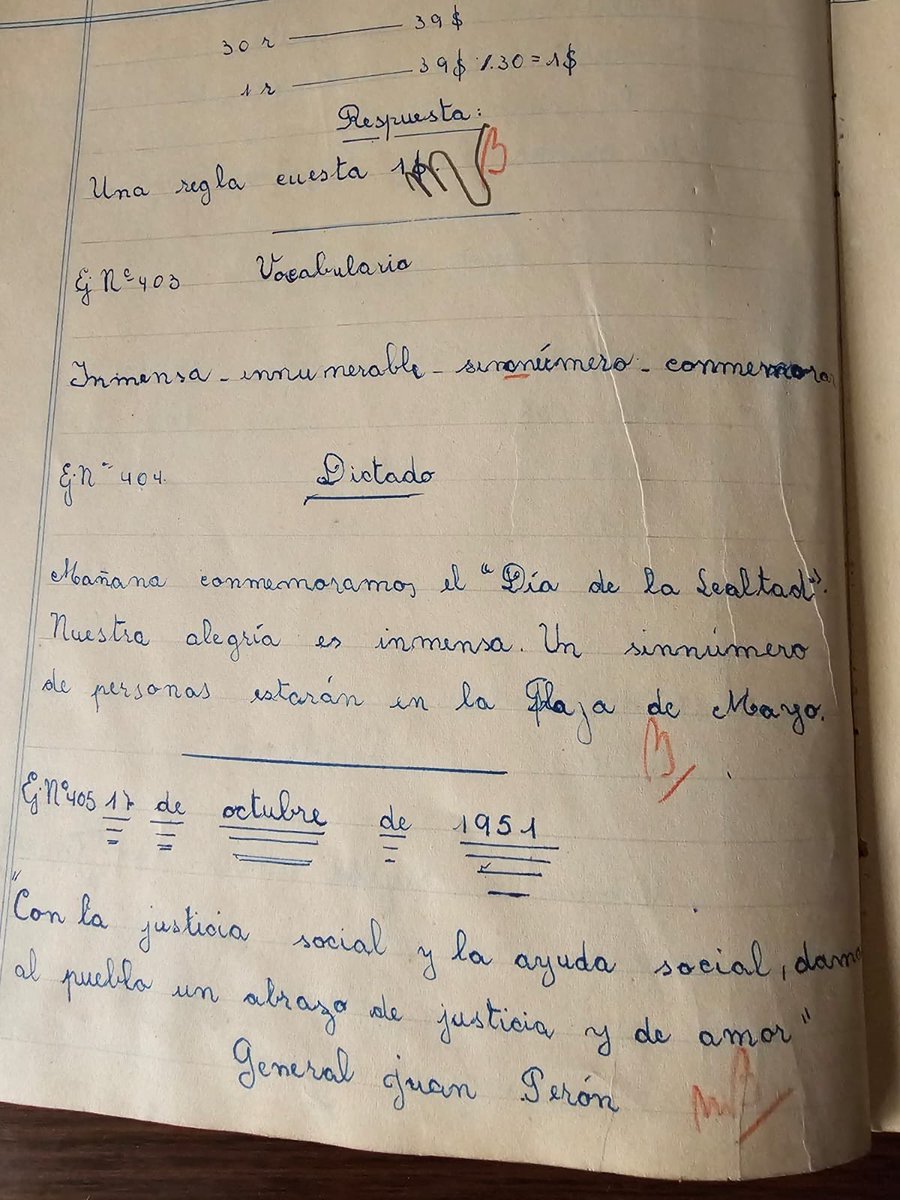 30 r ——— 39 $
1 r ——— 39 $ %.30 = 1 $
Respuesta:
Una regla cuesta 1$. B
Ej. Nº 403 Vocabulario
Inmensa - innumerable - sinnúmero - conmemorar
Ej. Nº 404. Dictado
Mañana conmemoramos el "Día de la Lealtad".
Nuestra alegría es inmensa. Un sinnúmero
de personas estarán en la Plaza de Mayo.
B
Ej. Nº 405 17 de octubre de 1951
"Con la justicia social y la ayuda social, damo
al pueblo un abrazo de justicia y de amor"
General Juan Perón
MB